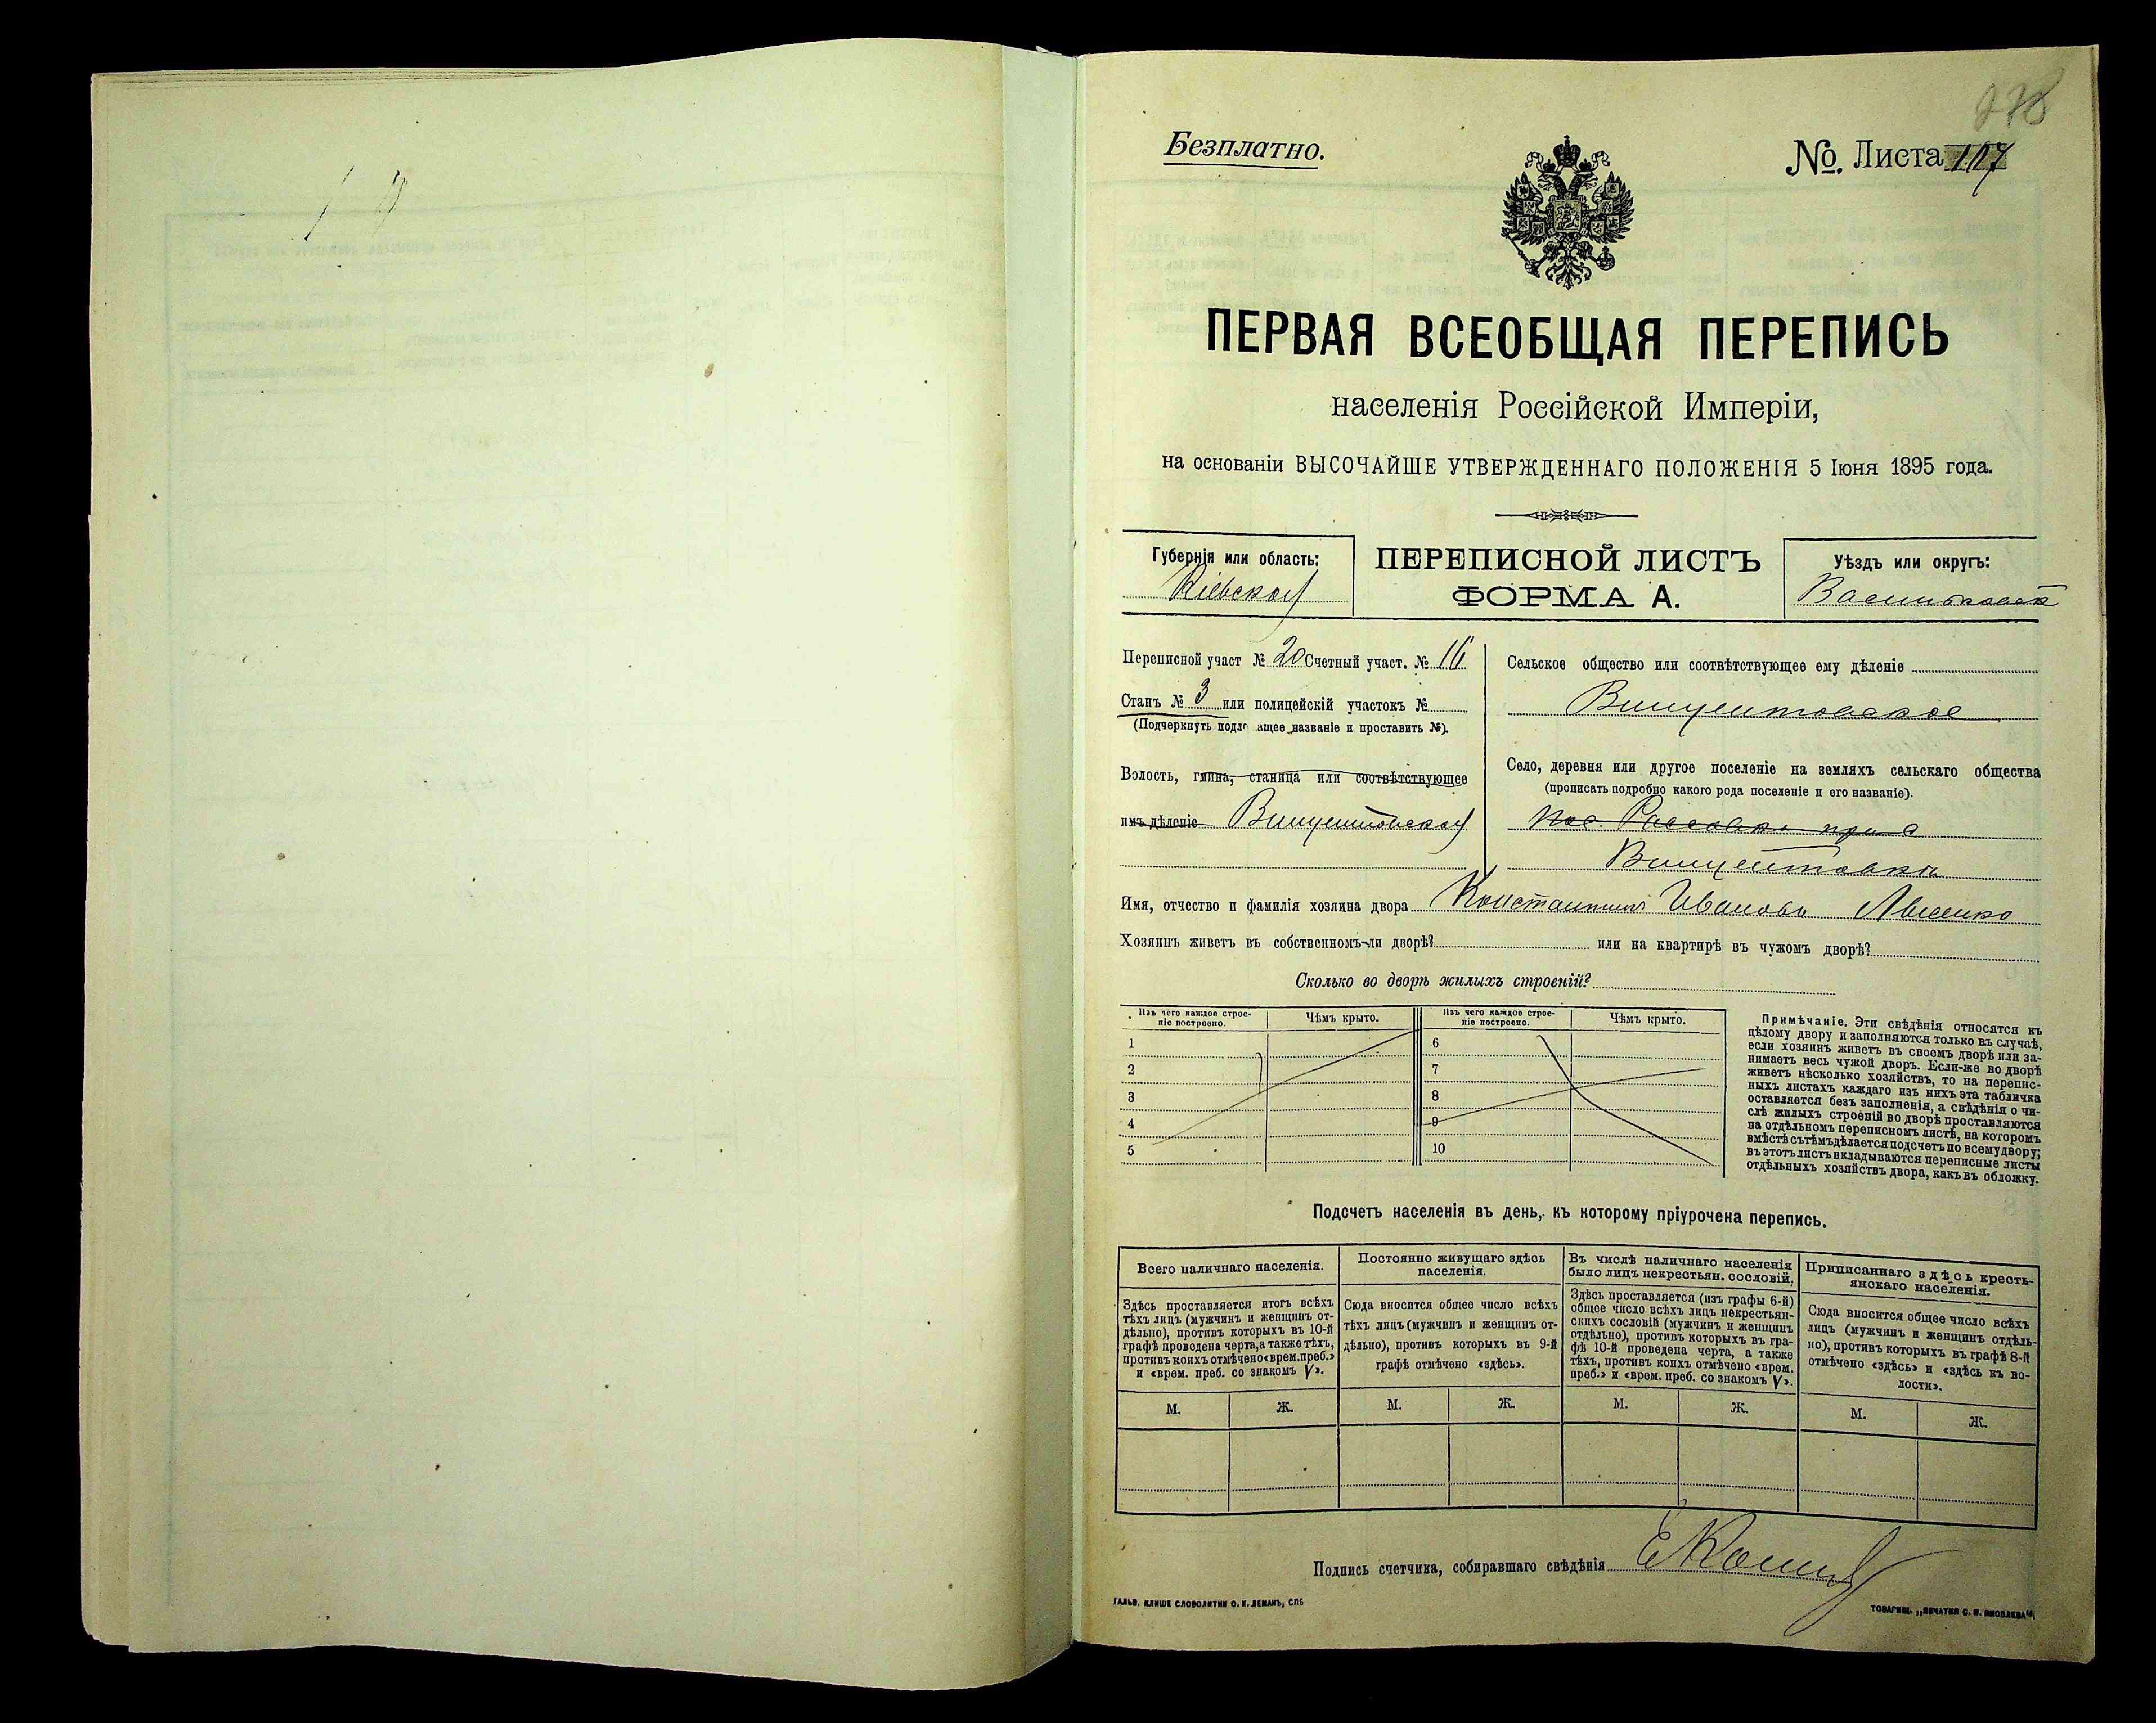 Безплатно.
№ Листа 107
ПЕРВАЯ ВСЕОБЩАЯ ПЕРЕПИСЬ
населенія Россійской Имперіи,
на основаніи ВЫСОЧАЙШЕ УТВЕРЖДЕННАГО ПОЛОЖЕНІЯ 5 Іюня 1895 года.
Губернія или область:
Кіевская
ПЕРЕПИСНОЙ ЛИСТЪ
ФОРМА А.
Уѣздъ или округъ:
Переписной участ № 20 Счетный участ. № 16
Станъ № 3 или полицейскій участокъ №
(Подчеркнуть подлежащее названіе и проставить №).
Волость, гмина, станица или соотвѣтствующее
имъ дѣленіе Винцентовская
Сельское общество или соотвѣтствующее ему дѣленіе
Винцентовское
Село, деревня или другое поселеніе на земляхъ сельскаго общества
(прописать подробно какого рода поселеніе и его названіе).
Винцентовка
Имя, отчество и фамилія хозяина двора Константинъ Ивановъ
Хозяинъ живетъ въ собственномъ-ли дворѣ? или на квартирѣ въ чужомъ дворѣ?
Сколько во дворѣ жилыхъ строеній?
Изъ чего каждое строе-
ніе построено.
Чѣмъ крыто.
Изъ чего каждое строе-
ніе построено.
Чѣмъ крыто.
1
2
3
4
5
6
7
8
9
10
Примѣчаніе. Эти свѣдѣнія относятся къ
цѣлому двору и заполняются только въ случаѣ,
если хозяинъ живетъ въ своемъ дворѣ или за-
нимаетъ весь чужой дворъ. Если-же во дворѣ
живетъ нѣсколько хозяйствъ, то на перепис-
ныхъ листахъ каждаго изъ нихъ эта табличка
оставляется безъ заполненія, а свѣдѣнія о чи-
слѣ жилыхъ строеній во дворѣ проставляются
на отдѣльномъ переписномъ листѣ, на которомъ
вмѣстѣ съ тѣмъ дѣлается подсчетъ по всему двору;
въ этотъ листъ вкладываются переписные листы
отдѣльныхъ хозяйствъ двора, какъ въ обложку.
Подсчетъ населенія въ день, къ которому пріурочена перепись.
Всего наличнаго населенія.
Здѣсь проставляется итогъ всѣхъ
тѣхъ лицъ (мужчинъ и женщинъ от-
дѣльно), противъ которыхъ въ 10-й
графѣ проведена черта, а также тѣхъ,
противъ коихъ отмѣчено «врем. преб.»
и «врем. преб. со знакомъ V».
М. Ж.
Постоянно живущаго здѣсь
населенія.
Сюда вносится общее число всѣхъ
тѣхъ лицъ (мужчинъ и женщинъ от-
дѣльно), противъ которыхъ въ 9-й
графѣ отмѣчено «здѣсь».
М. Ж.
Въ числѣ наличнаго населенія
было лицъ некрестьян. сословій.
Здѣсь проставляется (изъ графы 6-й)
общее число всѣхъ лицъ некрестьян-
скихъ сословій (мужчинъ и женщинъ
отдѣльно), противъ которыхъ въ гра-
фѣ 10-й проведена черта, а также
тѣхъ, противъ коихъ отмѣчено «врем.
преб.» и «врем. преб. со знакомъ V».
М. Ж.
Приписаннаго здѣсь кресть-
янскаго населенія.
Сюда вносится общее число всѣхъ
лицъ (мужчинъ и женщинъ отдѣль-
но), противъ которыхъ въ графѣ 8-й
отмѣчено «здѣсь» и «здѣсь къ во-
лости».
М. Ж.
Подпись счетчика, собиравшаго свѣдѣнія
ГАЛЬВ. КЛИШЕ СЛОВОЛИТНИ О. И. ЛЕМАНЪ, СПБ
ТОВАРИЩ. „ПЕЧАТНЯ С. П. ЯКОВЛЕВА“